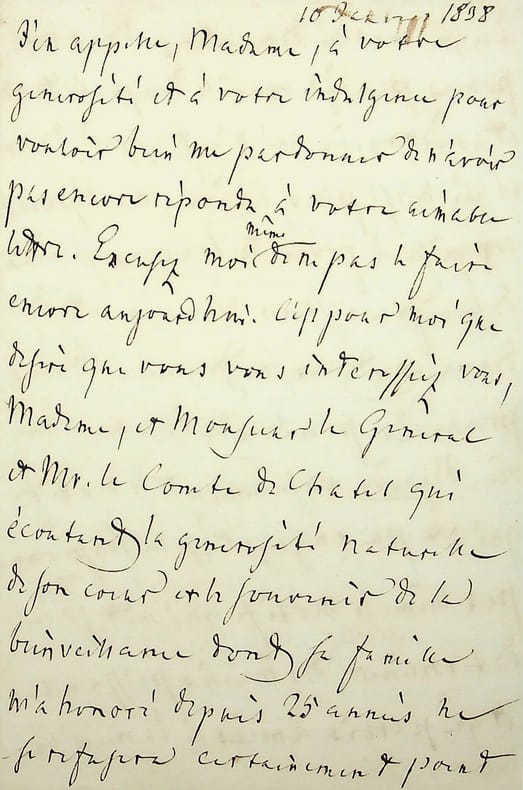 10 Janvier 1838
J'en appelle, Madame, à votre
générosité et à votre indulgence pour
vouloir bien me pardonner de n'avoir
pas encore répondu à votre aimable
lettre. Excusez moi même de ne pas le faire
encore aujourdhui. C'est pour moi que
desire que vous vous interessiez vous,
Madame, et Monsieur le Général
et Mr. le Comte de Chatel qui
écoutant la générosité naturelle
de son coeur et le souvenir de la
bienveillance dont sa famille
m'a honoré depuis 25 années ne
se refusera certainement point